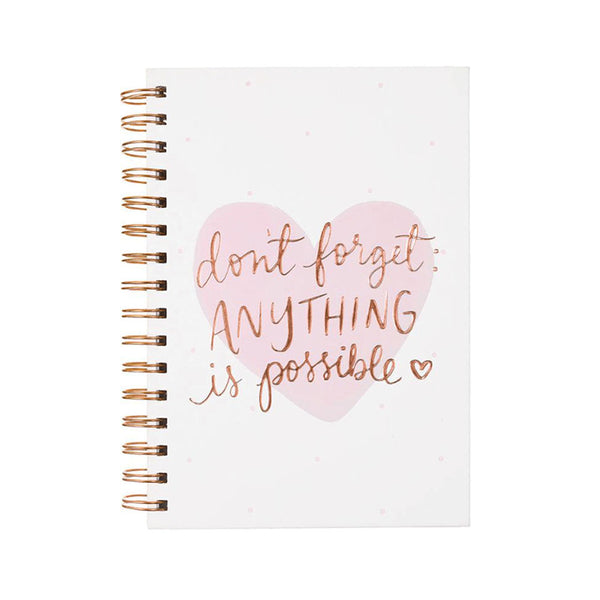 don't forget:
ANYTHING
is possible ♡